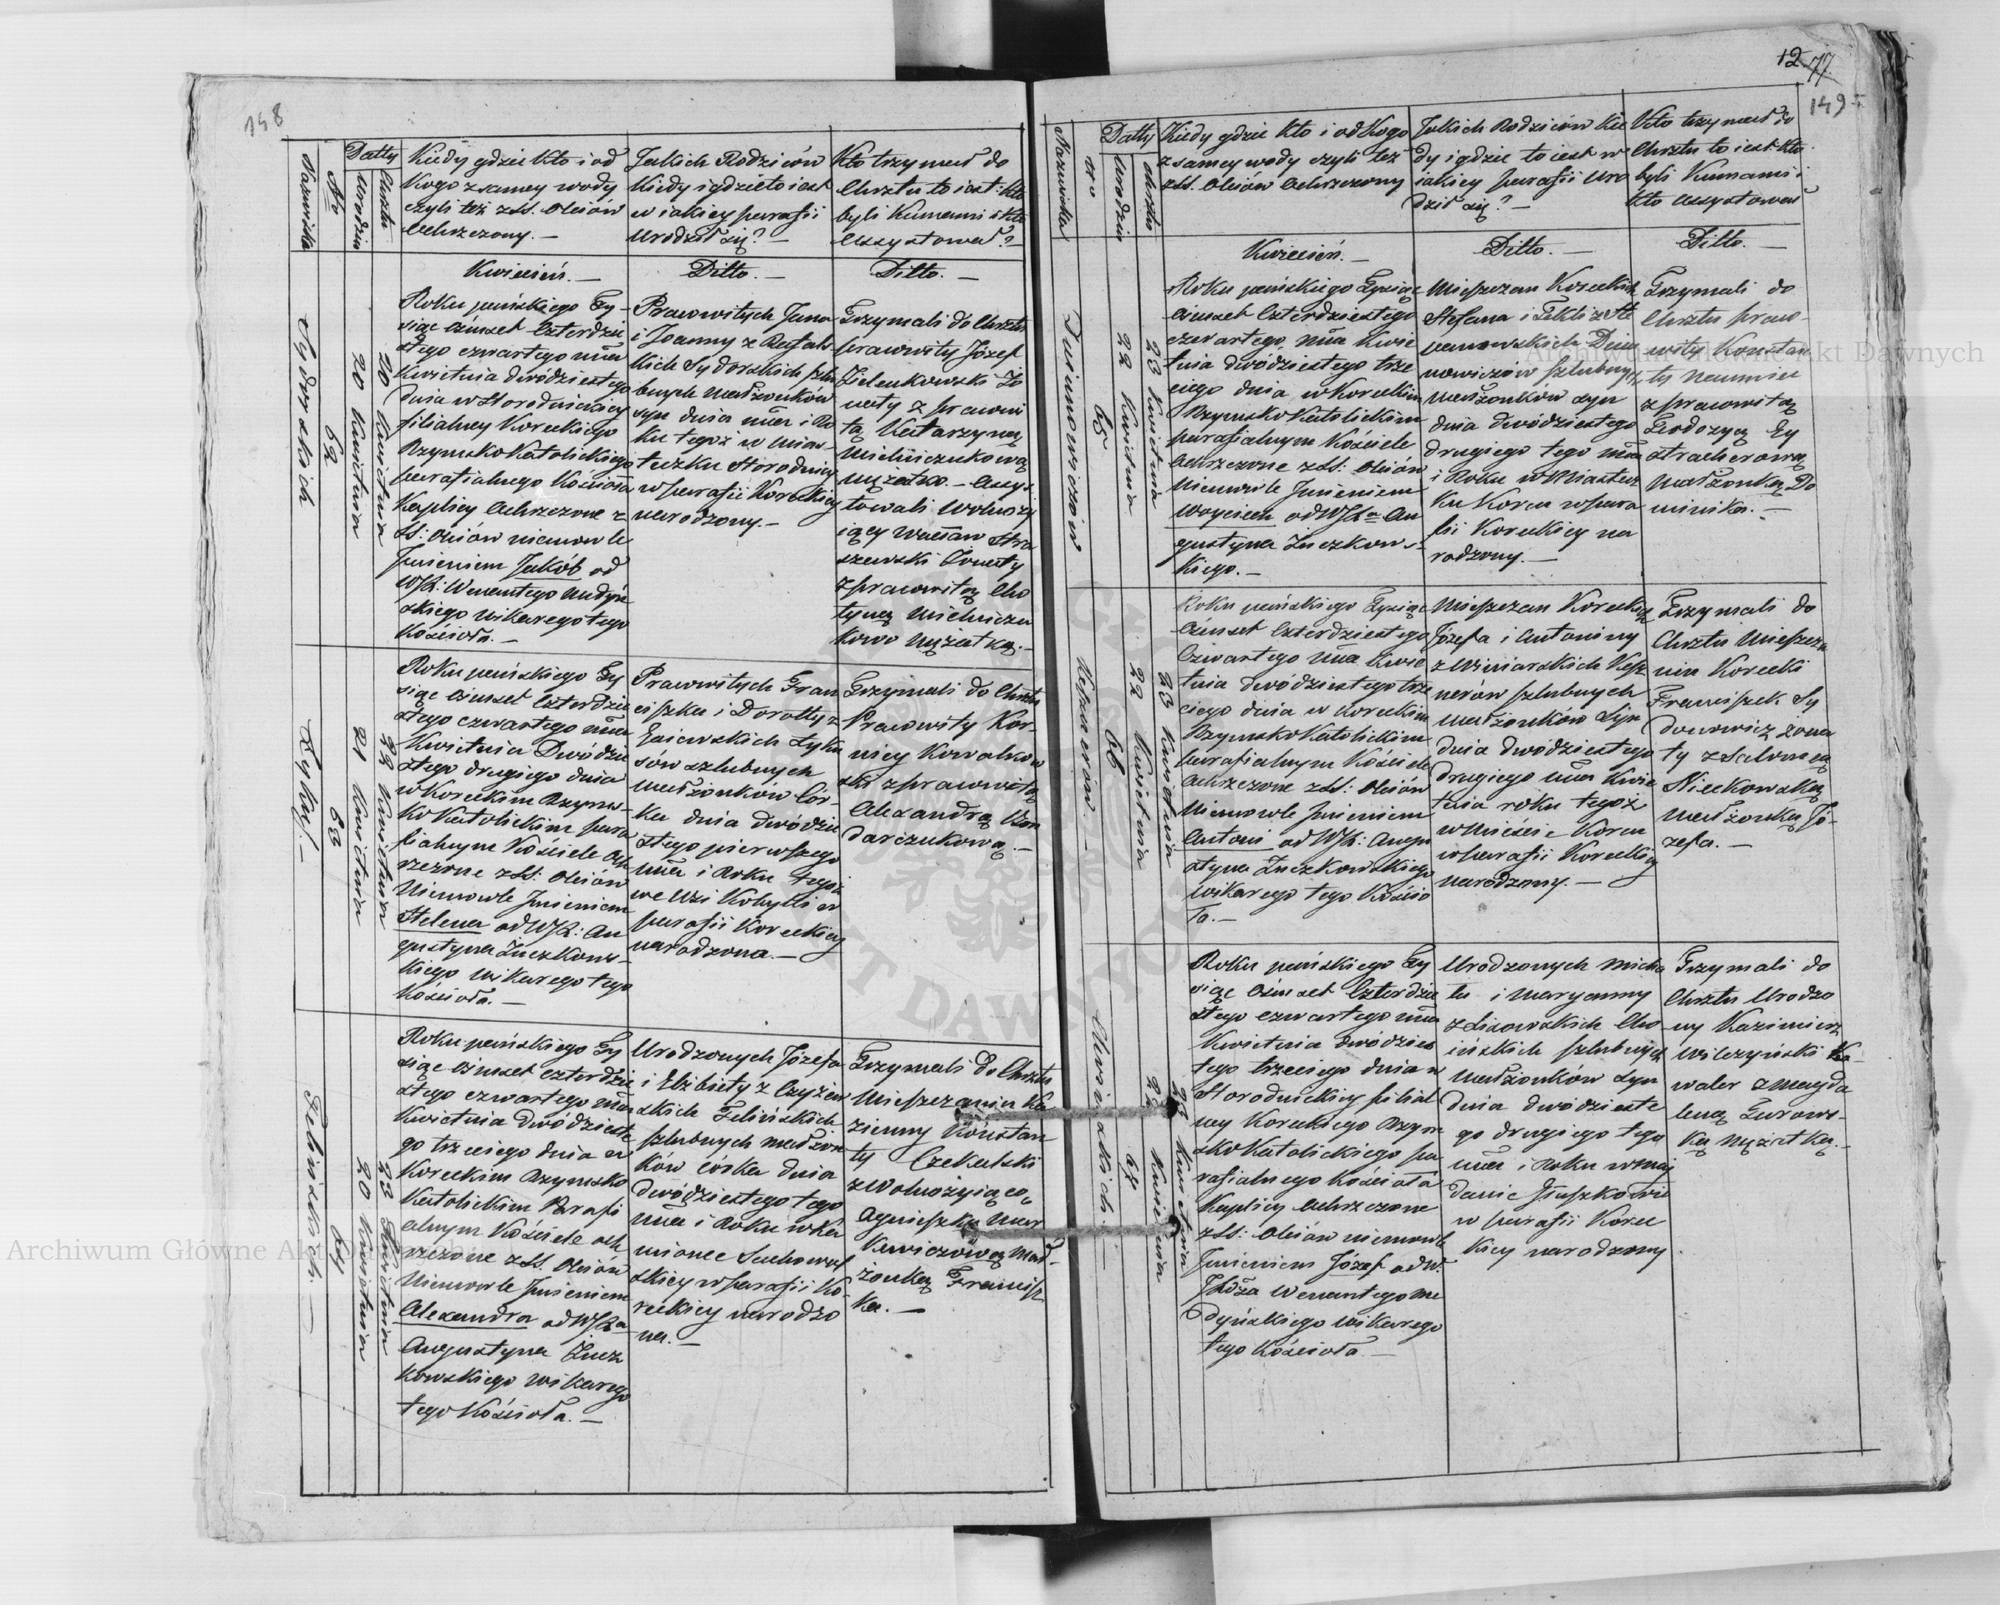 148
Nazwiska
No
Datty
Urodzin
Chrztu
Kiedy gdzie kto i od
Kogo z samey wody
czyli też z SS. Oleiów
Ochrzczony. —
Jakich Rodziców
kiedy i gdzie to iest
w iakiey parafii
urodził się? —
Kto trzymał do
Chrztu to iest: kto
byli Kumami i kto
Assystował?
Kwiecień. —
Ditto. —
Ditto. —
Sydorskich
62
20 Kwietnia
20 Kwietnia
Roku pańskiego Ty-
siąc ośmset czterdzie
stego czwartego mca
Kwietnia dwódziestego
dnia w Horodnickiey
filialney Koreckiego
Rzymsko Katolickiego
parafialnego Kościoła
Kaplicy Ochrzczone z
SS: Oleiów niemowle
Imieniem Jakób od
WJX: Wenantego Medyń
skiego wikarego tego
Kościoła. —
Pracowitych Jana
i Joanny z Rafals
kich Sydorskich szlu
bnych małżonków
syn dnia mca i Ro
ku tegoż w mias-
teczku Horodnicy
w parafii Koreckiey
narodzony. —
Trzymali do Chrztu
pracowity Józef
Zielenkowski Żo
naty z pracowi
tą Katarzyną
Mielniczukową
mężatką. — Assys
towali wolnoży
iący Wacław Stra
szewski Żonaty
z pracowitą Cho
tyną Mielniczu
kową mężatką. —
Rykus. —
63
21 Kwietnia
22 Kwietnia
Roku pańskiego Ty
siąc ośmset czterdzie
stego czwartego mca
Kwietnia Dwódzie
stego drugiego dnia
w Koreckim Rzyms-
ko Katolickim para
fialnym Kościele Och
rzczone z SS: Oleiów
Niemowle Imieniem
Helena od WJX: Au
gustyna Żuczkows-
kiego wikarego tego
Kościoła. —
Pracowitych Fran
ciszka i Dorotty z
Gaiewskich Ryku
sów szlubnych
małżonków Cór-
ka dnia dwódzie
stego pierwszego
mca i Roku tegoż
we Wsi Kobylli w
parafii Koreckiey
narodzona. —
Trzymali do Chrztu
Pracowity Kor-
niey Kowalkow
ski z pracowitą
Alexandrą Bon
darczukową. —
Felińskich. —
64
20 Kwietnia
23 Kwietnia
Roku pańskiego Ty
siąc ośmset czterdzie
stego czwartego mca
Kwietnia Dwódzieste
go trzeciego dnia w
Koreckim Rzymsko
Katolickim Parafi
alnym Kościele och
rzczone z SS. Oleiów
Niemowle Imieniem
Alexandra od WJXa
Augustyna Żucz
kowskiego Wikarego
tego Kościoła. —
Urodzonych Józefa
i Elżbiety z Czyżew
skich Felińskich
szlubnych małżon
ków córka dnia
dwódziestego tego
mca i Roku w Ka
mionce Suchowol
skiey w parafii Ko-
reckiey narodzo
na. —
Trzymali do Chrztu
Mieszczanin Ka
zienny Konstan
ty Czekalski
z Wolnożyiącą
Agnieszką Mar
kiewiczową Mał-
żonką Francisz
ka. —
12 77
149
Nazwiska
No
Datty
Urodzin
Chrztu
Kiedy gdzie kto i od Kogo
z samey wody czyli też
z SS. Oleiów Ochrzczony
Jakich Rodziców kie
dy i gdzie to iest w
iakiey parafii uro
dził się? —
Kto trzymał do
Chrztu to iest kto
byli Kumami i
kto Assystował
Kwiecień. —
Ditto. —
Ditto. —
65
22 Kwietnia
23 Kwietnia
Roku pańskiego Tysiąc
ośmset Czterdziestego
czwartego, mca Kwie
tnia dwódziestego trze
ciego dnia, w Koreckim
Rzymsko Katolickim
parafialnym Kościele
Ochrzczone z SS: Oleiów
Niemowle Imieniem
Woyciech od WJXa Au
gustyna Żuczkows-
kiego. —
Mieszczan Koreckich
Stefana i Tekli z Ste
panowskich Dmu
nowiczów szlubnych
małżonków syn
dnia dwódziestego
drugiego tego mca
i Roku w Miastecz
ku Korcu w para
fii Koreckiey na
rodzony. —
Trzymali do
Chrztu praco-
wity Konstan
ty Naumiec
z pracowitą
Teodozyą Ty
stracherową
małżonką Do
minika. —
66
22 Kwietnia
23 Kwietnia
Roku pańskiego Tysiąc
Ośmset Czterdziestego
Czwartego mca Kwie
tnia dwódziestego trze
ciego dnia w Koreckim
Rzymsko Katolickim
parafialnym Kościele
Ochrzczone z SS: Oleiów
Niemowle Imieniem
Antoni od WJX: Augu
styna Żuczkowskiego
wikarego tego Kościo
ła. —
Mieszczan Koreckich
Józefa i Antoniny
z Winiarskich Kesz
nerów szlubnych
małżonków Syn
dnia dwódziestego
drugiego mca Kwie
tnia roku tegoż
w Mieście Korcu
w parafii Koreckiey
narodzony. —
Trzymali do
Chrztu Mieszcza
nin Korecki
Franciszek Sy
donowicz żona
ty z Salomeą
Nieckowską
małżonką Jó-
zefa. —
67
22 Kwietnia
23 Kwietnia
Roku pańskiego Ty
siąc Ośmset Czterdzie
stego czwartego mca
Kwietnia dwódzies
tego trzeciego dnia w
Horodnickiey filial
ney Koreckiego Rzym
sko Katolickiego pa
rafialnego Kościoła
Kaplicy Ochrzczone
z SS: Oleiów niemowle
Imieniem Józef od W:
JXdza Wenantego Me
dyńskiego Wikarego
tego Kościoła. —
Urodzonych Micha
ła i Maryanny
z Lisowskich Cho
ińskich szlubnych
małżonków syn
dnia dwódzieste
go drugiego tego
mca i Roku w maj
danie Hłuszkowie
w parafii Korec
kiey narodzony
Trzymali do
Chrztu Urodzo
ny Kazimierz
Wilczyński Ka-
waler z Magda
leną Turows-
ką mężatką. —
Archiwum Główne Akt Dawnych
Archiwum Główne Akt Dawnych